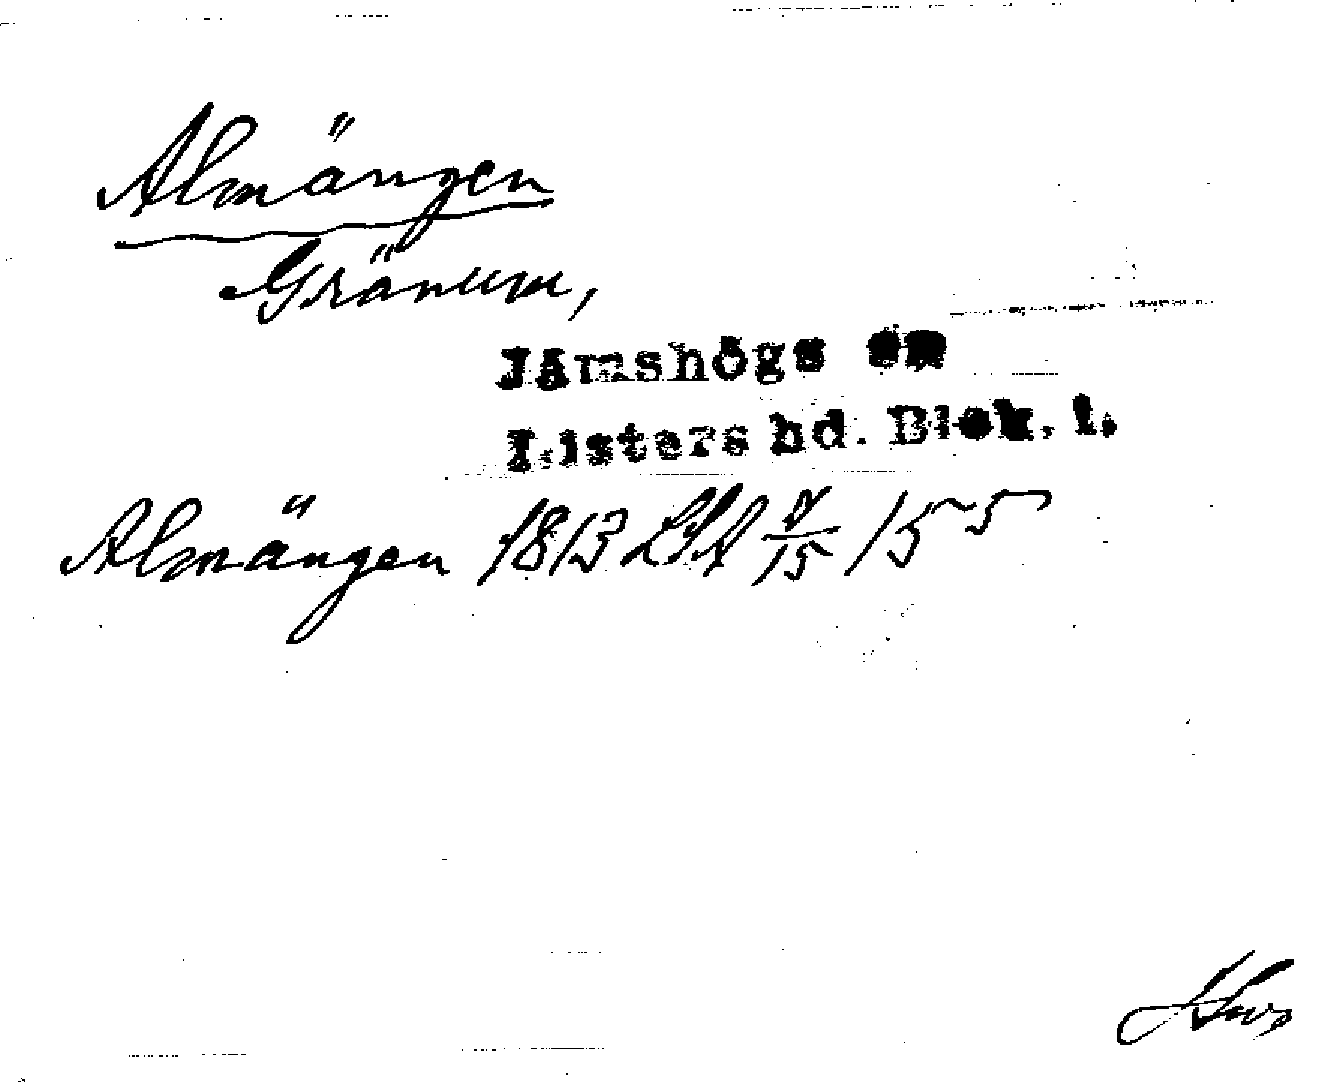 Almängen
Gränum,
Jämshögs sn
Listers hd. Blek. l.
Almängen 1813 LSA 15